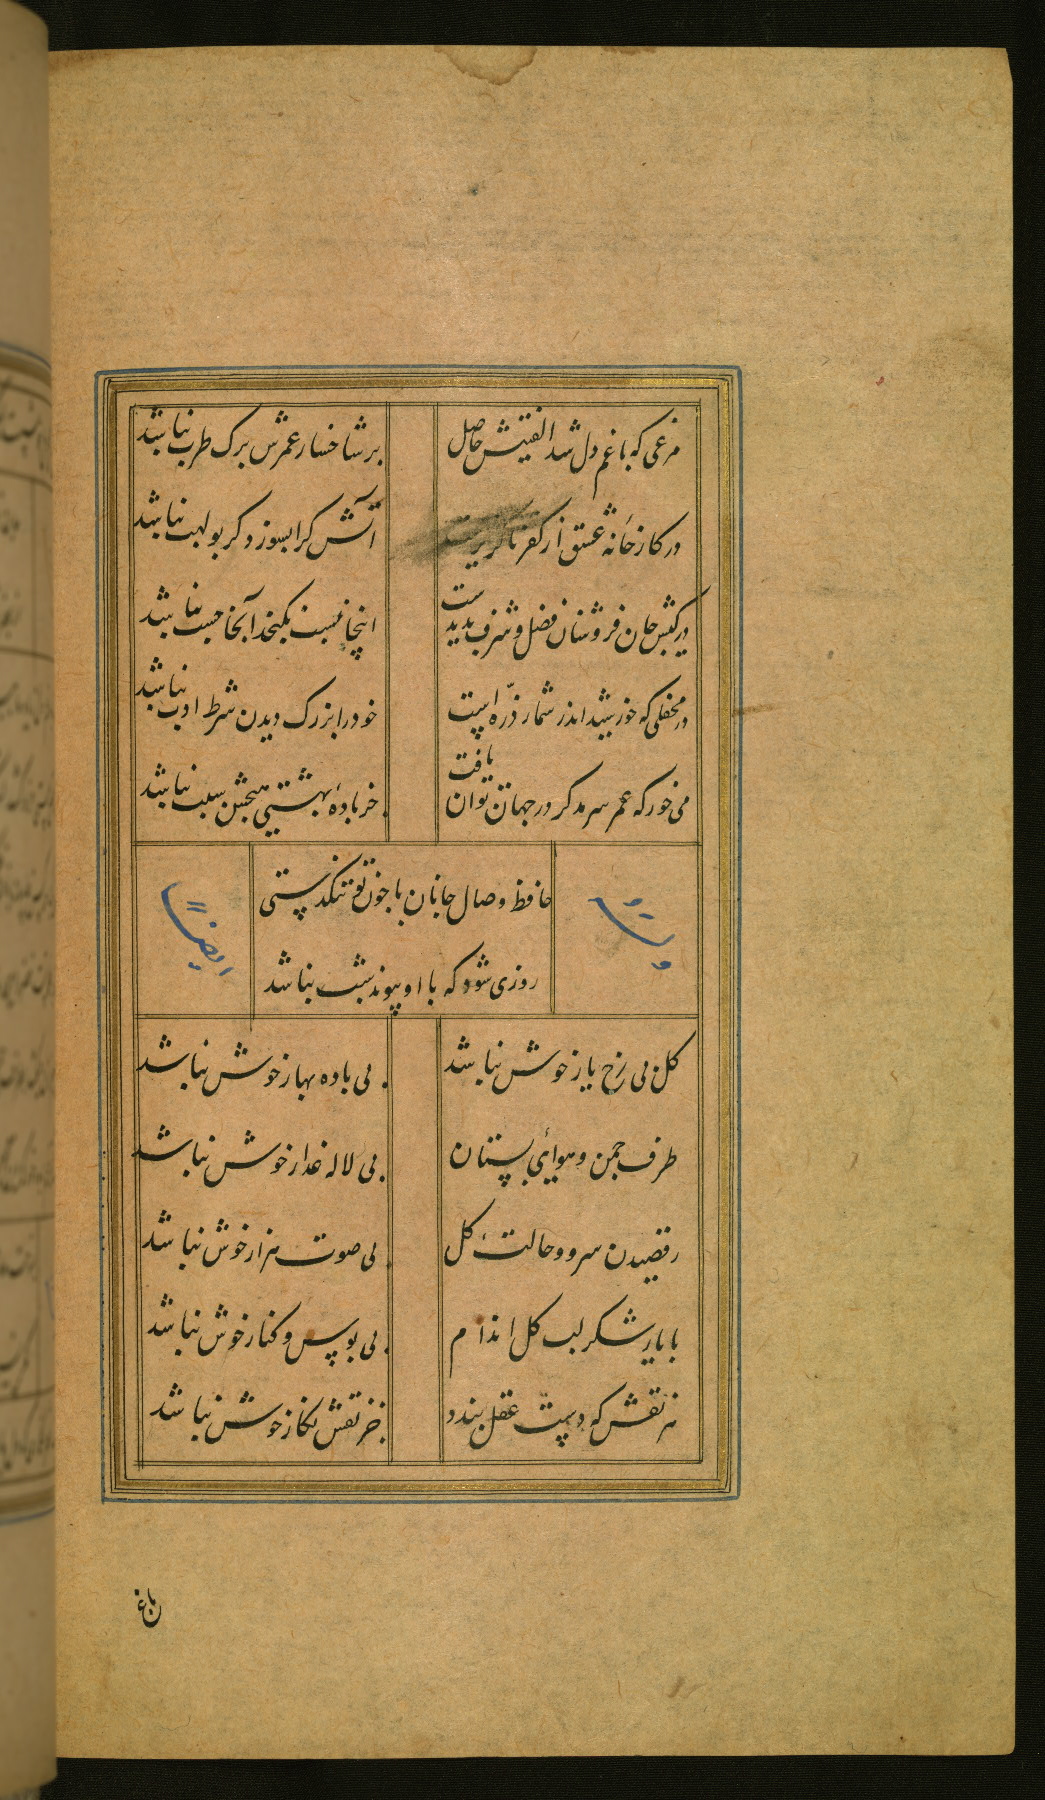 مرغی که با غم دل شد الفتیش حاصل
بر شاخسار عمرش برک طرب نباشد
در کارخانه عشق از کفر ناکزیرست
آتش کرا بسوزد کر بولهب نباشد
در کیش جان فروشان فضل و شرف بدیدست
اینجا نسب نکنجد آنجا حسب نباشد
در محفلی که خورشید اندر شمار ذرّه است
خود را بزرک دیدن شرط ادب نباشد
می خور که عمر سرمد کر در جهان توان یافت
جز بادهٔ بهشتی هیچش سبب نباشد
حافظ وصال جانان با چون تو تنکدستی
روزی شود که با او پیوند شب نباشد
وله
ایضاً
کل بی رخ یار خوش نباشد
بی باده بهار خوش نباشد
طرف چمن و هوای بستان
بی لاله عذار خوش نباشد
رقصیدن سرو و حالت کل
بی صوت هزار خوش نباشد
با یار شکر لب کل اندام
بی بوس و کنار خوش نباشد
هر نقش که دست عقل بندد
جز نقش نکار خوش نباشد
باغ